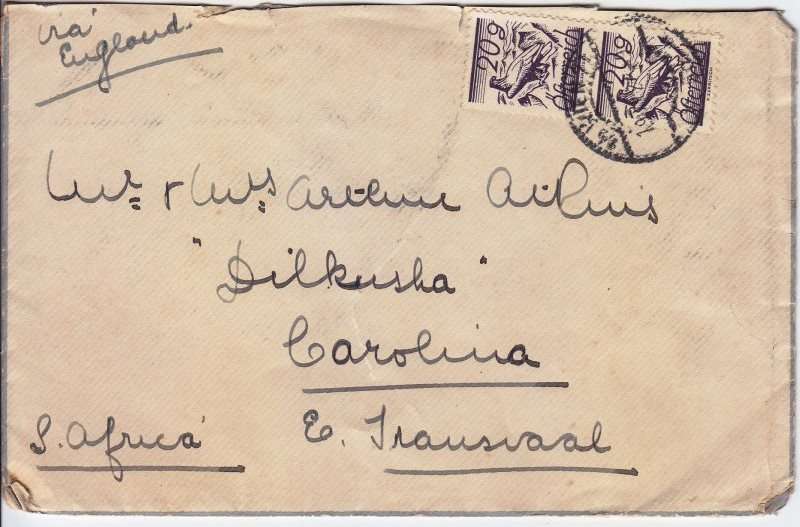 via
England.
20g 20g
Österreich Österreich
WIEN
Mr. & Mrs. Arthur Atkins
"Dilkusha"
Carolina
S. Africa E. Transvaal